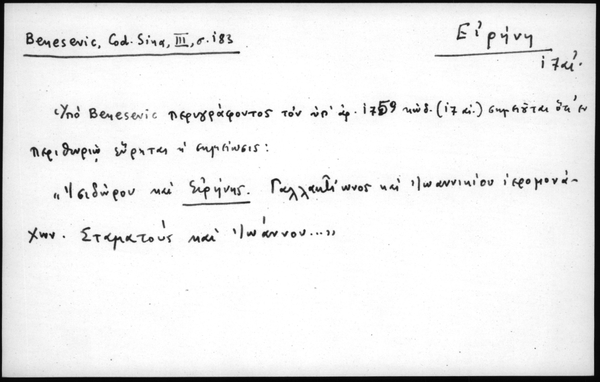 Benesevic, Cod. Sina, III, σ. 183
Εἰρήνη
17 αἰ.
Ὑπὸ Benesevic περιγράφοντος τὸν ὑπ' ἀρ. 1759 κώδ. (17 αἰ.) σημειοῦται ὅτι ἐν
περιθωρίῳ εὕρηται ἡ σημείωσις:
"Ἰσιδώρου καὶ Εἰρήνης. Γαλλακτίωνος καὶ Ἰωαννικίου ἱερομονά-
χων. Σταματοὺς καὶ Ἰωάννου..."